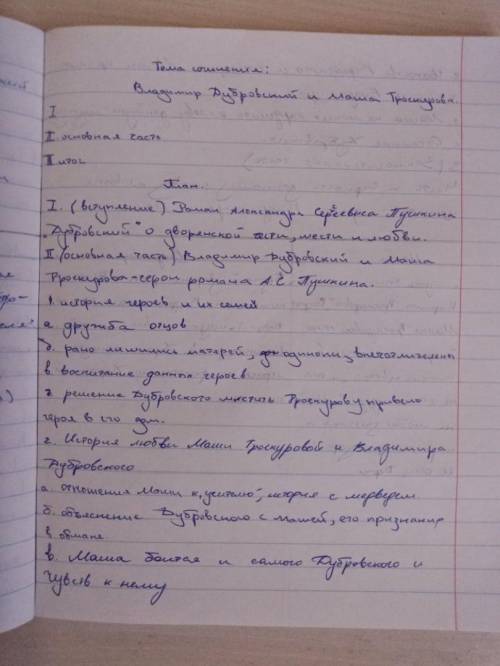 Тема сочинения:
Владимир Дубровский и Маша Троекурова.
I
II основная часть
III итог
План.
I. (вступление) Роман Александра Сергеевича Пушкина
"Дубровский" о дворянской чести, мести и любви.
II (основная часть) Владимир Дубровский и Маша
Троекурова-герои романа А.С Пушкина.
1. история героев и их семей
а. дружба отцов
б. рано лишились матерей, одиноки, впечатлительны
в. воспитание данных героев
г. решение Дубровского мстить Троекурову привело
героя в его дом.
2. История любви Маши Троекуровой и Владимира
Дубровского
а. отношения Маши к "учителю", история с медведем
б. объяснение Дубровского с Машей, его признание
в обмане
в. Маша боится и самого Дубровского и
чувств к нему